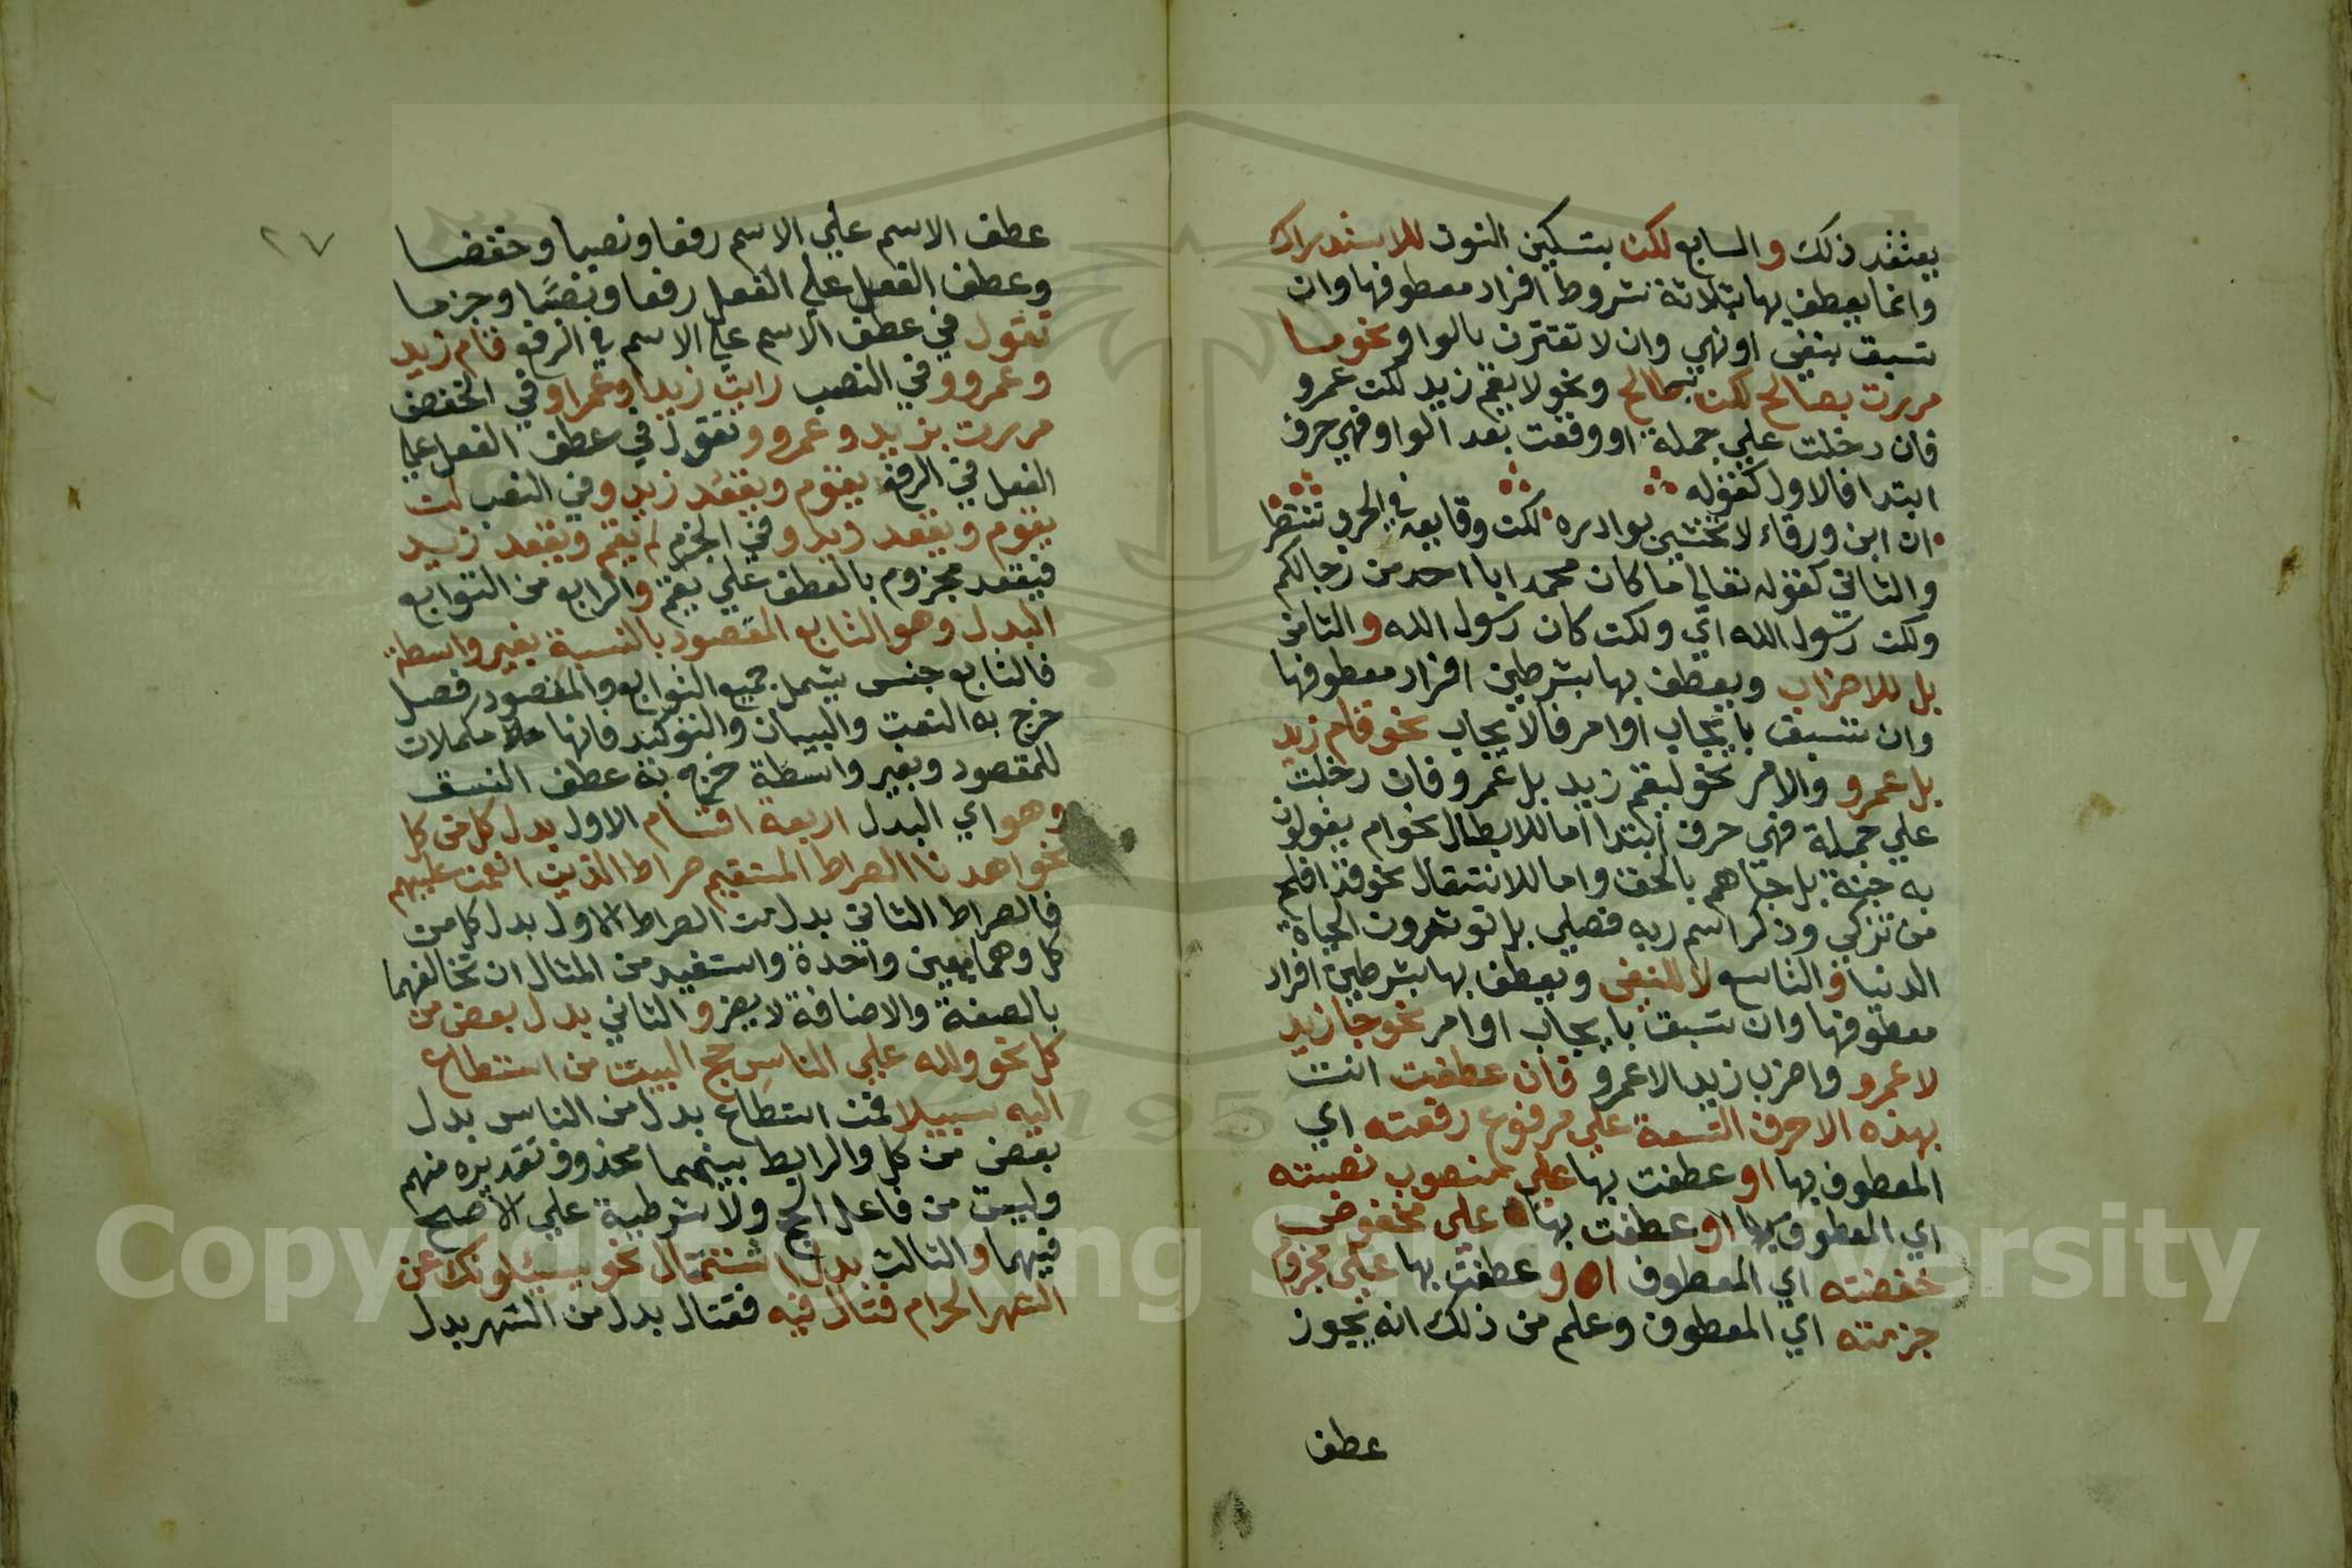 يعتقد ذلك والسابع لكن بتسكين النون للاستدراك
وانما يعطف بها بثلاثة شروط افراد معطوفها وان
تسبق بنفي او نهي وان لا تقترن بالواو نحو ما
مررت بصالح لكن طالح ونحو لا يقم زيد لكن عمرو
فان دخلت علي جملة او وقعت بعد الواو فهي حرف
ابتدا فالاول كقوله
ان ابن ورقاء لا تخشي بوادره لكن وقايعه في الحرب تنتظر
والثاني كقوله تعالي ما كان محمد ابا احد من رجالكم
ولكن رسول الله اي ولكن كان رسول الله والثامن
بل للاضراب ويعطف بها بشرطين افراد معطوفها
وان تسبق بايجاب او امر فالايجاب نحو قام زيد
بل عمرو والامر نحو ليقم زيد بل عمرو فان دخلت
علي جملة فهي حرف ابتدا اما للابطال نحو ام يقولون
به جنة بل جاهم بالحق واما للانتقال نحو قد افلح
من تزكي وذكر اسم ربه فصلي بل توثرون الحياة
الدنيا والتاسع لا للنفي ويعطف بها بشرطين افراد
معطوفها وان تسبق بايجاب او امر نحو جا زيد
لا عمرو واضرب زيدا لا عمرو فان عطفت انت
بهذه الاحرف التسعة علي مرفوع رفعته اي
المعطوف بها او عطفت بها علي منصوب نصبته
اي المعطوف بها او عطفت بها علي مخفوض
خفضته اي المعطوف او عطفت بها علي مجزوم
جزمته اي المعطوف وعلم من ذلك انه يجوز
عطف
٢٧
عطف الاسم علي الاسم رفعا ونصبا وخفضا
وعطف الفعل علي الفعل رفعا ونصبا وجزما
تقول في عطف الاسم علي الاسم في الرفع قام زيد
وعمرو وفي النصب رايت زيدا وعمرا وفي الخفض
مررت بزيد وعمرو وتقول في عطف الفعل علي
الفعل في الرفع يقوم ويقعد زيد وفي النصب لن
يقوم ويقعد زيد وفي الجزم لم يقم ويقعد زيد
فيقعد مجزوم بالعطف علي يقم والرابع من التوابع
البدل وهو التابع المقصود بالنسبة بغير واسطة
فالتابع جنس يشمل جميع التوابع والمقصود فصل
خرج به النعت والبيان والتوكيد فانها مكملات
للمقصود وبغير واسطة خرج به عطف النسق
وهو اي البدل اربعة اقسام الاول بدل كل من كل
نحو اهدنا الصراط المستقيم صراط الذين انعمت عليهم
فالصراط الثاني بدل من الصراط الاول بدل كل من
كل وهما بعين واحدة واستفيد من المثال ان تخالفهما
بالصفة والاضافة لا يضر والثاني بدل بعض من
كل نحو ولله علي الناس حج البيت من استطاع
اليه سبيلا فمن استطاع بدل من الناس بدل
بعض من كل والرابط بينهما محذوف تقديره منهم
وليست من فاعل الحج ولا شرطية علي الاصح
فيهما والثالث بدل اشتمال نحو يسئلونك عن
الشهر الحرام قتال فيه فقتال بدل من الشهر بدل
Copyright © King Saud University
195